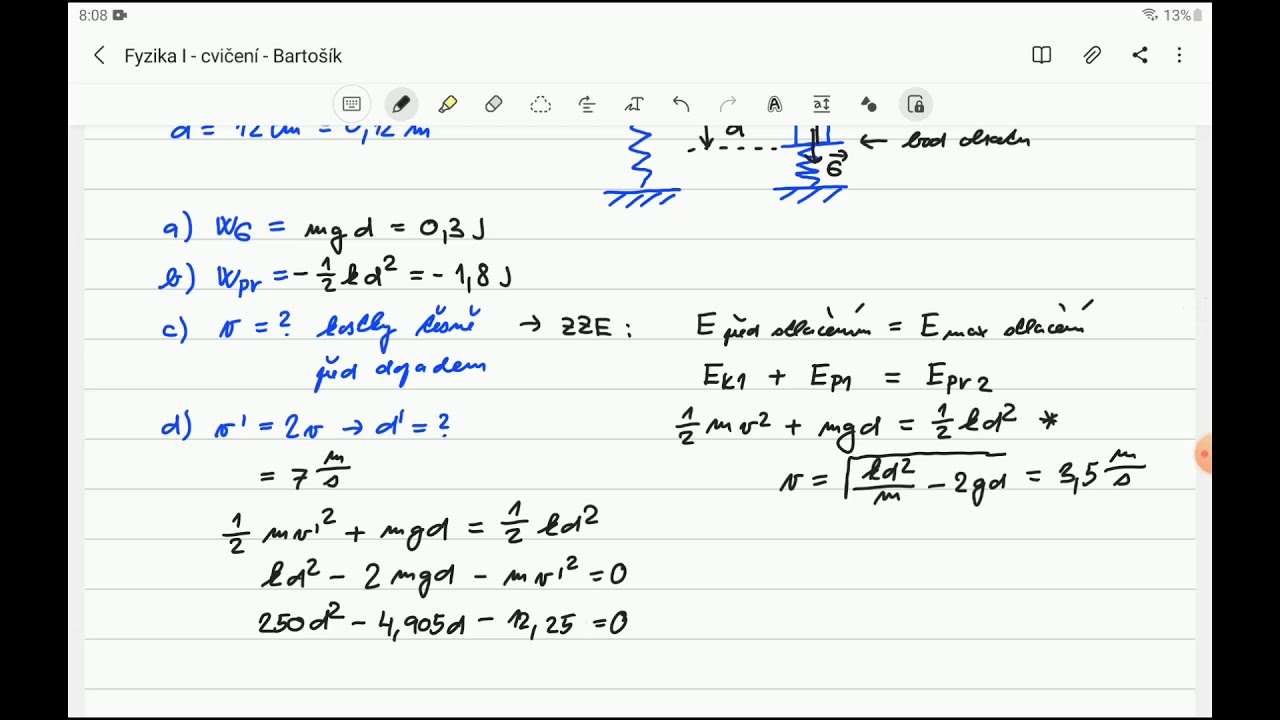 8:08 13%
Fyzika I - cvičení - Bartošík
d = 12 cm = 0,12 m
d
G
← bod obratu
a) W_G = mgd = 0,3 J
b) W_pr = -1/2 kd² = -1,8 J
c) v = ? kostky těsně → ZZE: E před stlačením = E max stlačení
před dopadem
E_K1 + E_p1 = E_pr2
1/2 mv² + mgd = 1/2 kd² *
v = √(kd²/m - 2gd) = 3,5 m/s
d) v' = 2v → d' = ?
= 7 m/s
1/2 mv'² + mgd = 1/2 kd²
kd² - 2mgd - mv'² = 0
250d² - 4,905d - 12,25 = 0